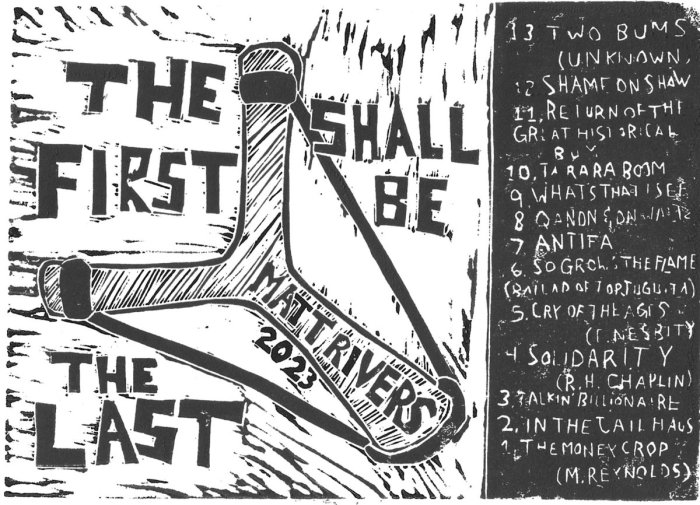 THE
FIRST
SHALL
BE
THE
LAST
MATT RIVERS
2023
13 TWO BUMS
(UNKNOWN,
12 SHAME ON SHAW
11. RETURN OF THE
GREAT HISTORICAL
10. TA RARA BOOM
9 WHATS THAT I SEE
8 QANON &
7 ANTIFA
6. SO GROWS THE FLAME
(BALLAD OF TORTUGUITA)
5. CRY OF THE AGES
(E. NESBIT)
4 SOLIDARITY
(R.H. CHAPLIN)
3 TALKIN' BILLIONAIRE
2. IN THE JAIL HAUS
1. THE MONEY CROP
(M. REYNOLDS)